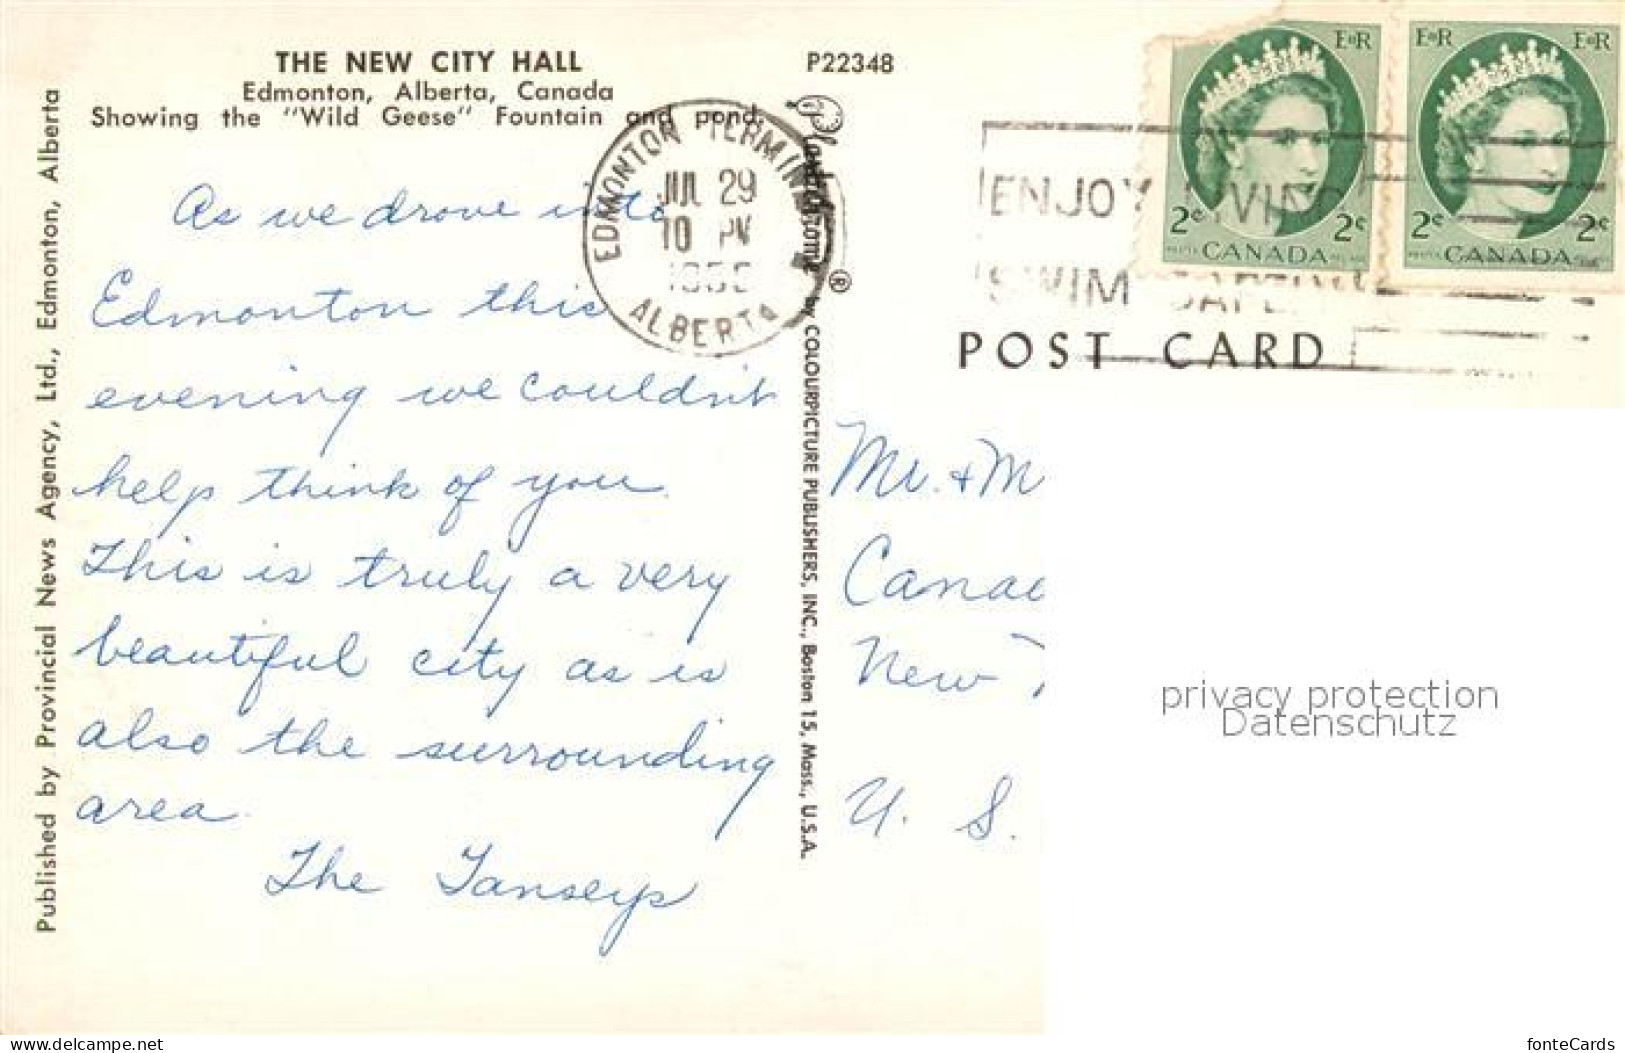 THE NEW CITY HALL
Edmonton, Alberta, Canada
Showing the "Wild Geese" Fountain and pond.
P22348
Published by Provincial News Agency, Ltd., Edmonton, Alberta
As we drove into
Edmonton this
evening we couldn't
help think of you.
This is truly a very
beautiful city as is
also the surrounding
area.
The Tanseys
EDMONTON TERMINAL
JUL 29
10 PM
ALBERTA
Plastichrome ® by COLOURPICTURE PUBLISHERS, INC., Boston 15, Mass., U.S.A.
ENJOY LIVING
SWIM SAFELY
E R E R
2¢ 2¢
CANADA
E R E R
2¢ 2¢
CANADA
POST CARD
Mr. + M
Canad
New
U. S.
privacy protection
Datenschutz
www.delcampe.net
fonteCards